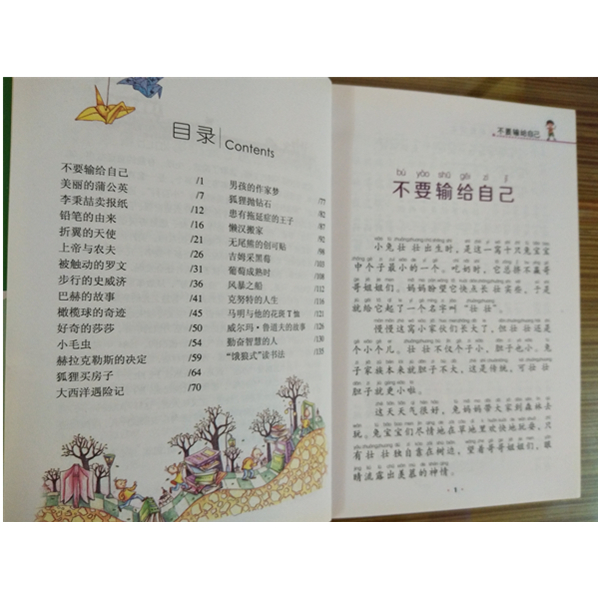 目录 Contents
不要输给自己 /1
美丽的蒲公英 /7
李秉喆卖报纸 /12
铅笔的由来 /16
折翼的天使 /21
上帝与农夫 /26
被触动的罗文 /31
步行的史威济 /37
巴赫的故事 /41
橄榄球的奇迹 /45
好奇的莎莎 /50
小毛虫 /54
赫拉克勒斯的决定 /59
狐狸买房子 /64
大西洋遇险记 /70
男孩的作家梦 /77
狐狸抛钻石 /82
患有拖延症的王子 /87
懒汉搬家 /92
无尾熊的创可贴 /98
吉姆采黑莓 /103
葡萄成熟时 /108
风暴之船 /112
克努特的人生 /116
马明与他的花斑T恤 /121
威尔玛·鲁道夫的故事 /126
勤奋智慧的人 /130
“饿狼式”读书法 /135
不要输给自己
bù yào shū gěi zì jǐ
不要输给自己
小兔壮壮出生时，是这一窝十只兔宝宝
中个子最小的一个。吃奶时，它总挤不赢哥
哥姐姐们。妈妈盼望它快点长壮实些，于是
就给它起了一个名字叫“壮壮”。
慢慢这窝小家伙们长大了，但壮壮还是
个小个儿。壮壮不仅个子小，胆子也小。兔
子家族本来就胆子不大，这是传统，可壮壮
胆子就更小啦。
这天天气很好，兔妈妈带大家到森林去
玩。兔宝宝们尽情地在草地里欢快地玩耍，只
有壮壮独自靠在树边，望着哥哥姐姐们，眼
睛流露出羡慕的神情。
·1·